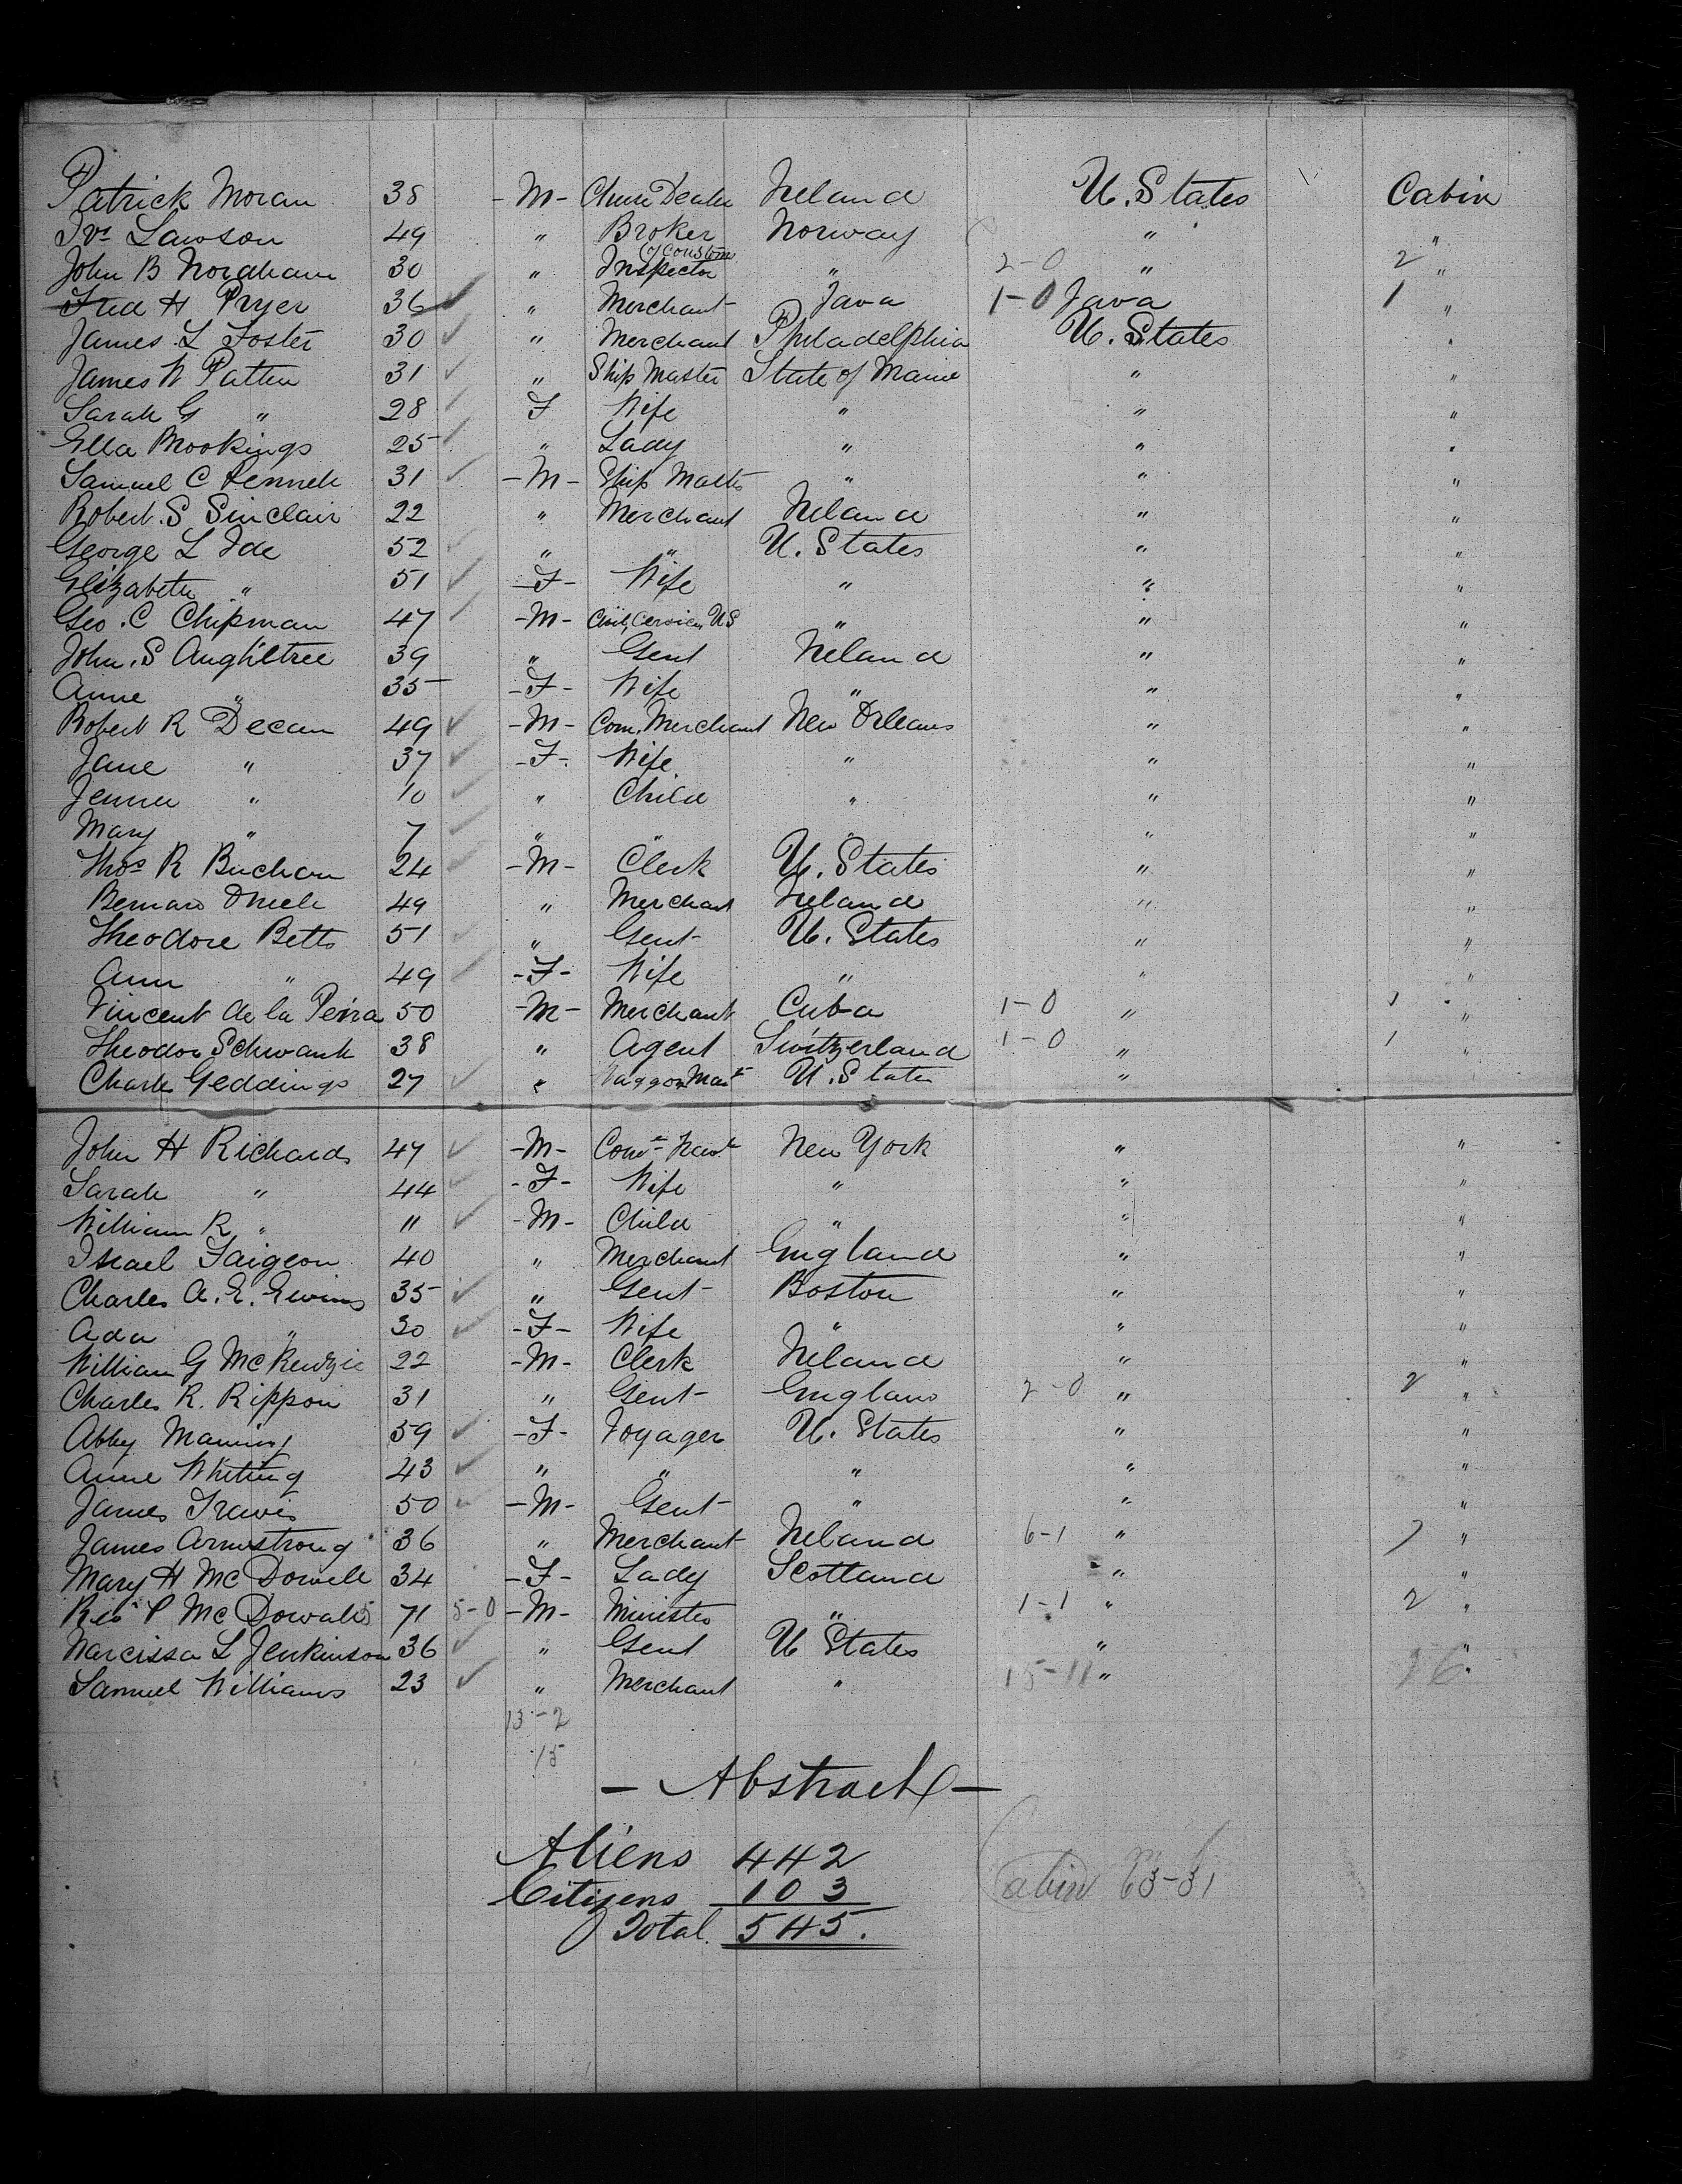 Patrick Moran 38 -M- Cheese Dealer Ireland U. States Cabin
Ivr Lawson 49 " Broker Norway " "
John B Nordham 30 " Inspector of Coustom " 2-0 " 2 "
Fred H Pryer 36 ✓ " Merchant Java 1-0 Java 1 "
James L Foster 30 ✓ " Merchant Philadelphia U. States "
James W Patten 31 ✓ " Ship Master State of Maine " "
Sarah G " 28 ✓ F Wife " " "
Ella Brookings 25 ✓ " Lady " " "
Samuel C 31 ✓ -M- Ship Mastr " " "
Robert S Sinclair 22 " Merchant Ireland " "
George L Ide 52 ✓ " " U. States " "
Elizabeth " 51 ✓ -F- Wife " " "
Geo. C Chipman 47 ✓ -M- Civil, Cervice US " " "
John. S Anghiltree 39 " Gent Ireland " "
Anne " 35 -F- Wife " " "
Robert R Decan 49 ✓ -M- Com. Merchant New Orleans " "
Jane " 37 ✓ -F- Wife " " "
Jennie " 10 ✓ " Child " " "
Mary " 7 ✓ " " " " "
Thos R Buchan 24 ✓ -M- Clerk U. States " "
Bernard 49 " Merchant Ireland " "
Theodore Betts 51 ✓ " Gent U. States " "
Ann " 49 ✓ -F- Wife " " "
Vincent de la Peira 50 -M- Merchant Cuba 1-0 " 1 "
Theodor Schwank 38 " Agent Switzerland 1-0 " 1 "
Charles Geddings 27 ✓ " Waggon Mast U. States " "
John H Richards 47 ✓ -M- New York " "
Sarah " 44 ✓ -F- Wife " " "
William R " 11 ✓ -M- Child " " "
Israel Faigeon 40 " Merchant England " "
Charles A. E. Ewins 35 ✓ " Gent Boston " "
Ada " 30 ✓ -F- Wife " " "
William G McKenzie 22 -M- Clerk Ireland " "
Charles R. Rippon 31 " Gent England 2-0 " 2 "
Abby Manning 59 ✓ -F- Voyager U. States " "
Anne Whiting 43 ✓ " " " " "
James Travis 50 ✓ -M- Gent " " "
James Armstrong 36 " Merchant Ireland 6-1 " 7 "
Mary H McDowell 34 -F- Lady Scotland " "
Rev P McDowall 71 5-0 -M- Minister " 1-1 " 2 "
Narcissa L Jenkinson 36 ✓ " Gent U States " "
Samuel Williams 23 ✓ " Merchant " 15-11 " 26 "
13-2
15
- Abstract -
Aliens 442
Citizens 103 Cabin 63-31
Total. 545.